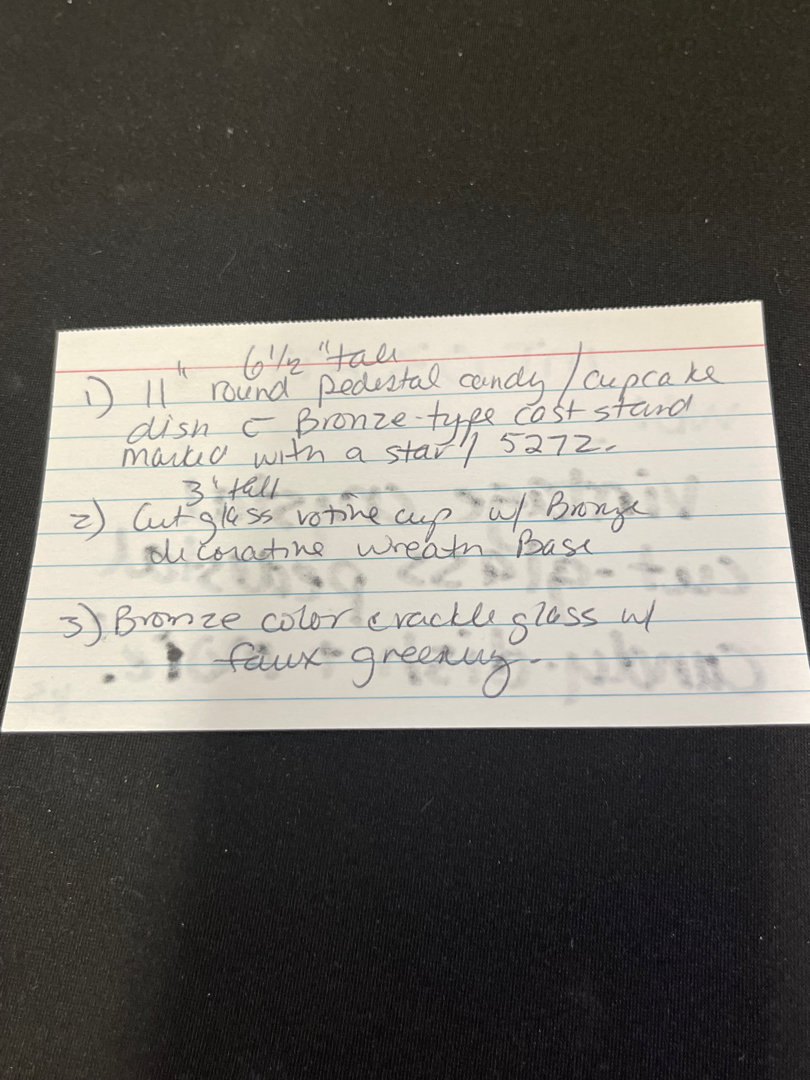 6 1/2 "tall
1) 11" round pedestal candy / cupcake
dish c Bronze-type cast stand
marked with a star / 5272.
3" tall
2) Cut glass votive cup w/ Bronze
decorative wreath Base
3) Bronze color crackle glass w/
faux greenery.